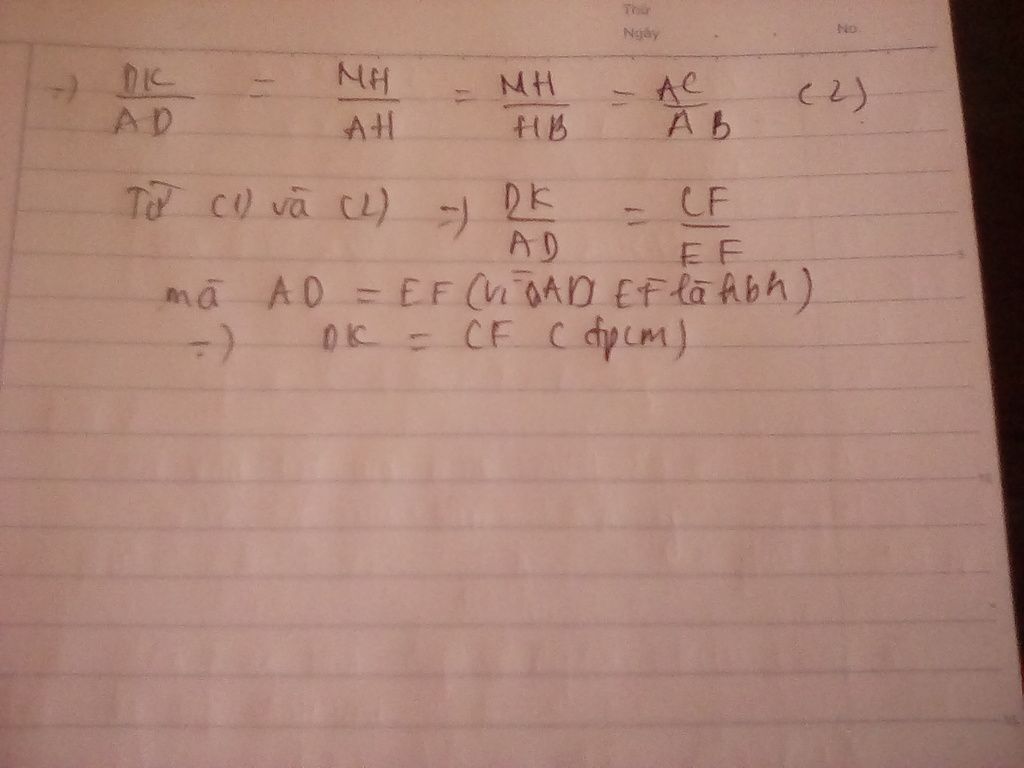 Thứ
Ngày No
=) DK/AD = MH/AH = MH/HB = AC/AB (2)
Từ (1) và (2) =) DK/AD = CF/EF
mà AD = EF (vì ◊AD EF là hbh)
=) DK = CF (đpcm)